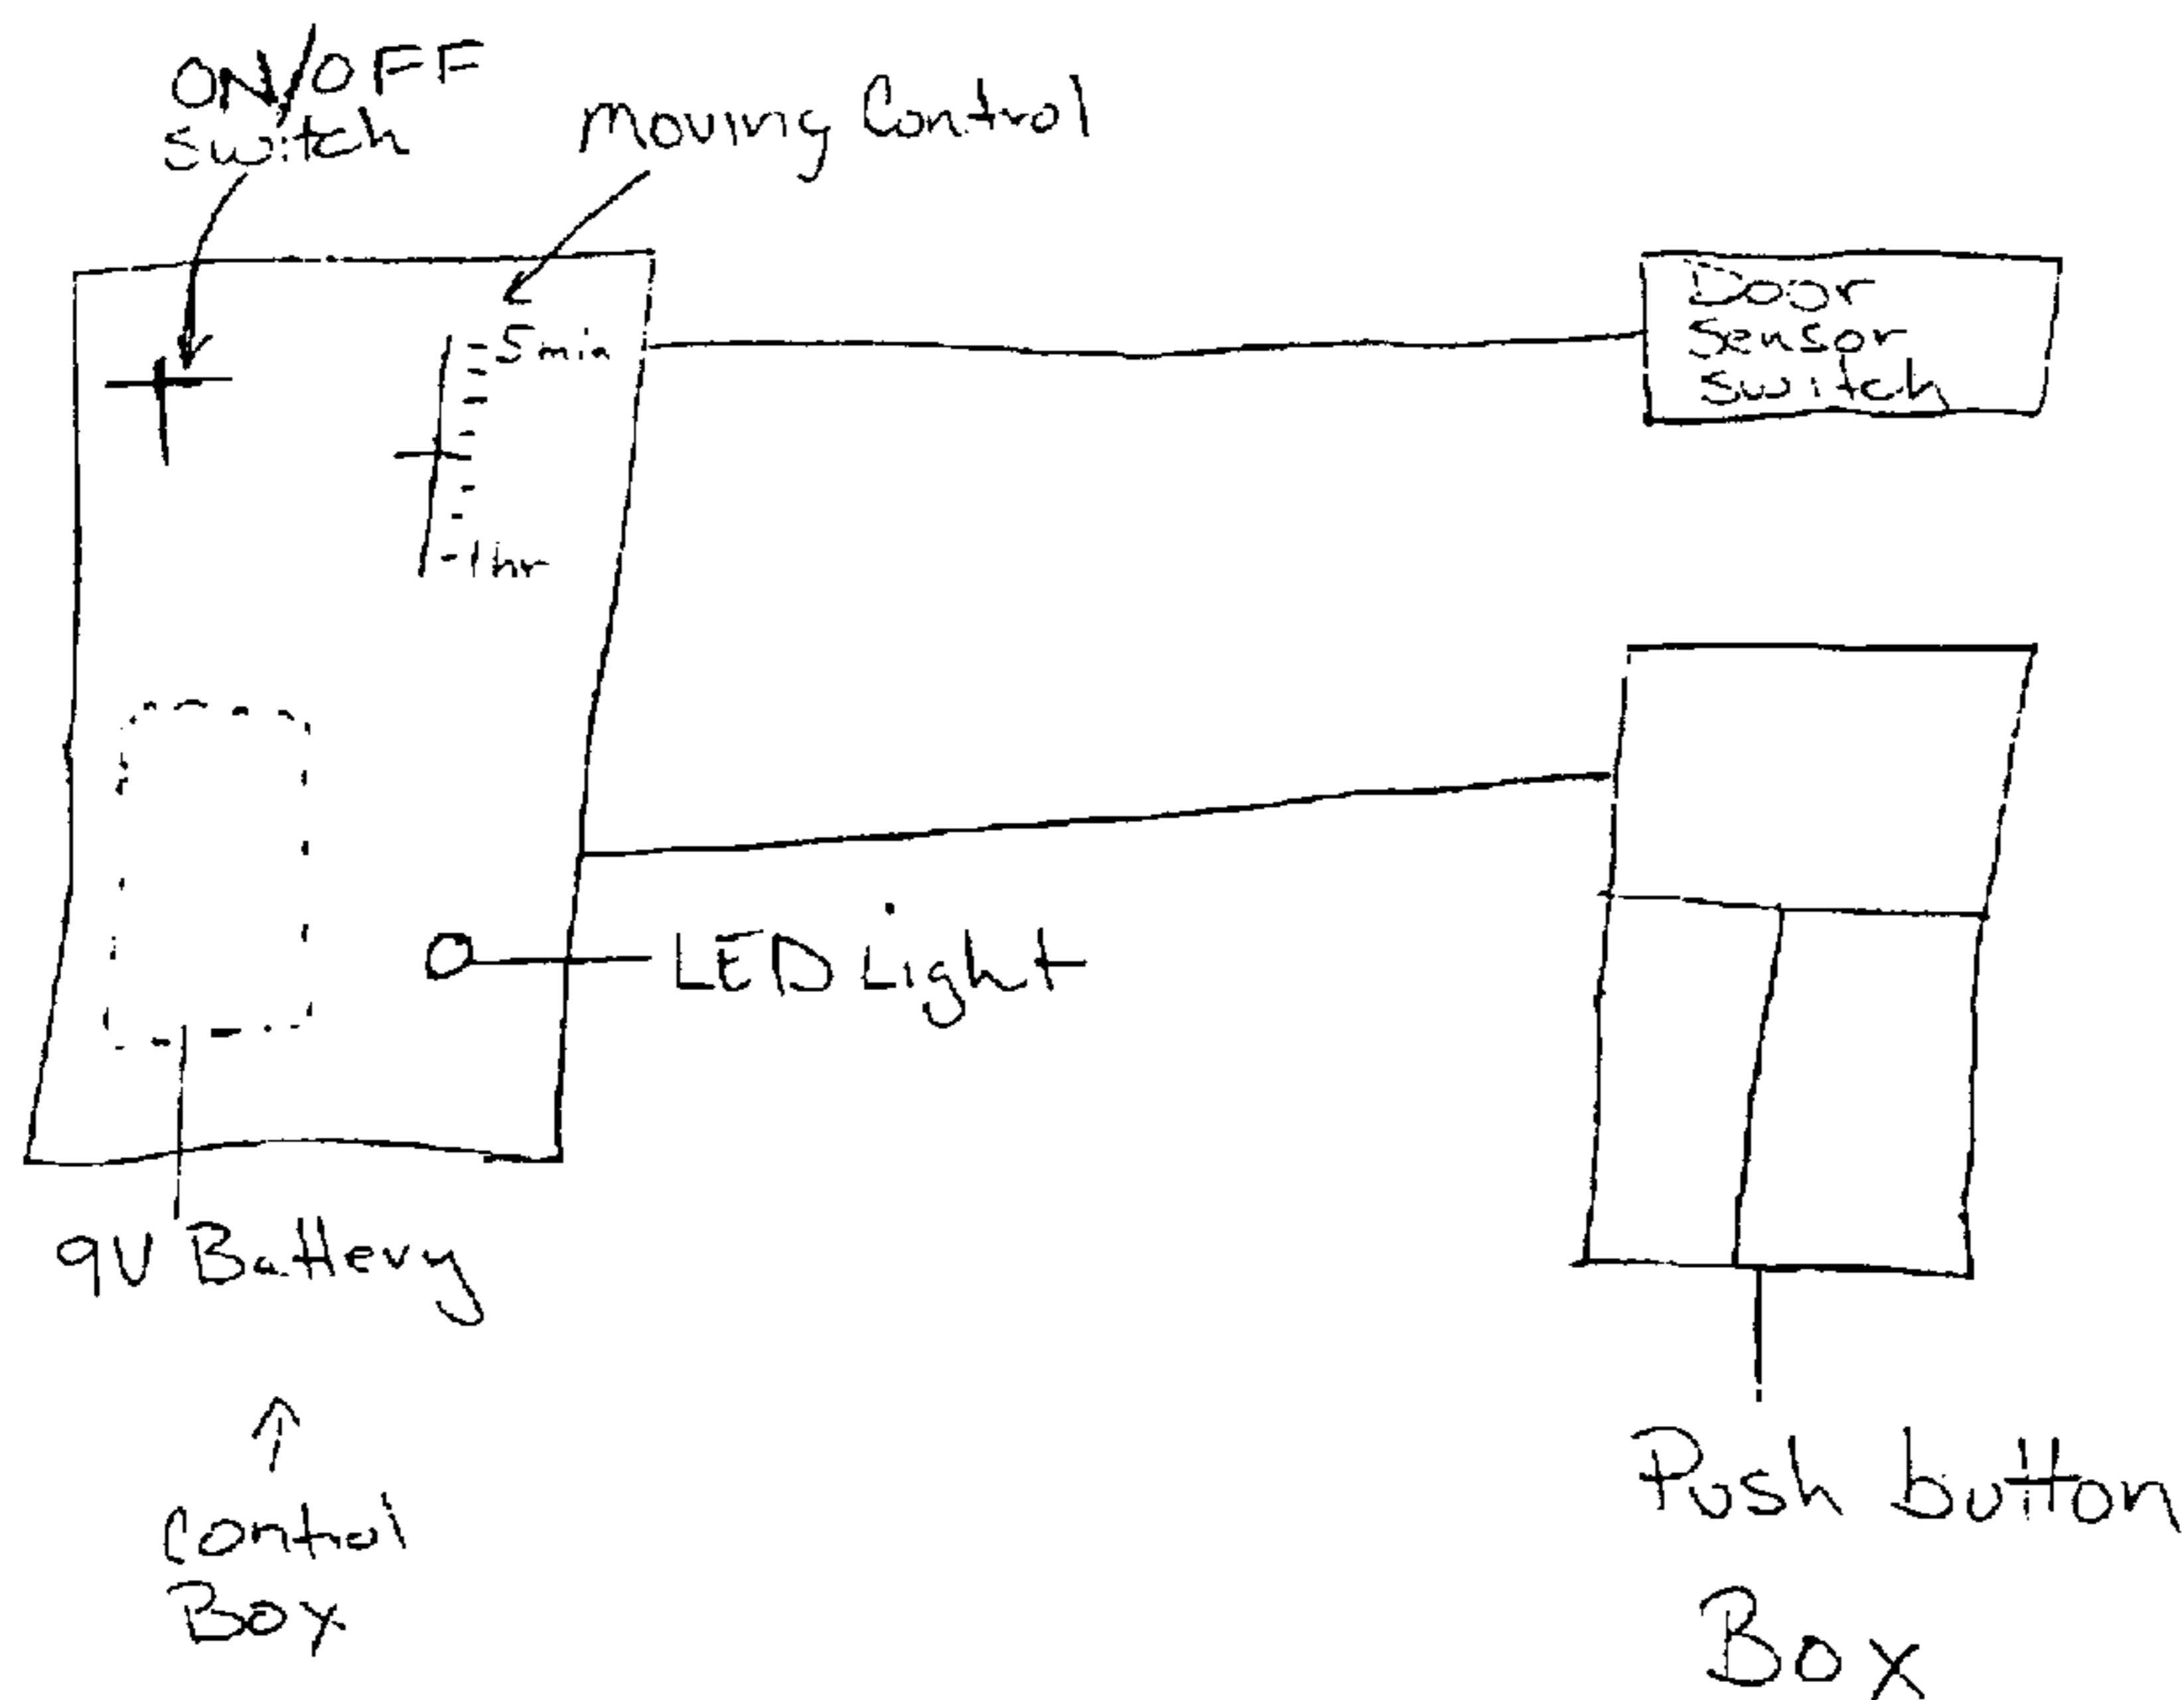 ON/OFF
Switch
Moving Control
5 min
1hr
Door
Sensor
Switch
LED Light
9V Battery
Control
Box
Push button
Box